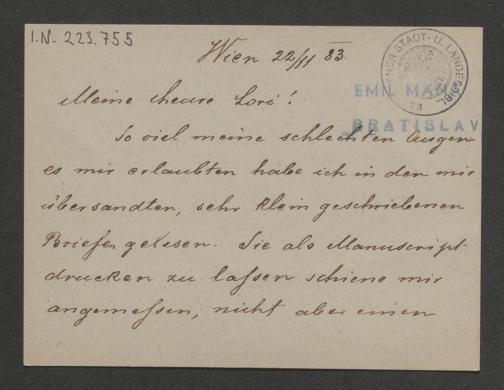 I.N. 223.755
Wien 22/11 83.
WIENER STADT- U. LANDESBIBL
EMIL MA
BRATISLAV
Meine theure Lori!
So viel meine schlechten Augen
es mir erlaubten habe ich in den mir
übersandten, sehr klein geschriebenen
Briefen gelesen. Sie als Manuscript
drucken zu lassen schiene mir
angemessen, nicht aber einen